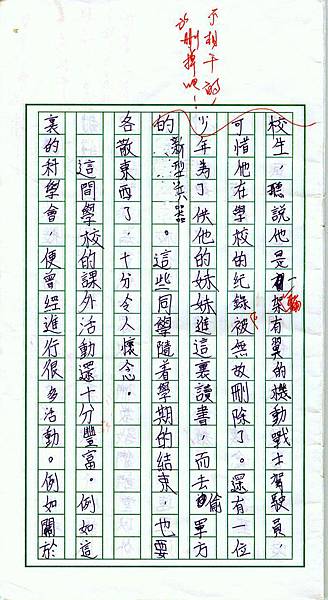 不相干的,
以刪掉吧!
校生,聽說他是一架有翼的機動戰士駕駛員,
輛
可惜他在學校的紀錄被無故刪除了。還有一位
少年為了供他的妹妹進這裏讀書,而去偷軍方
的新型兵器。這些同學隨着學期的結束,也要
各散東西了,十分令人懷念。
這間學校的課外活動還十分豐富。例如這
裏的科學會,便曾經進行很多活動。例如關於